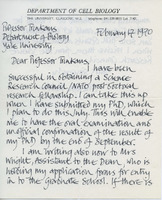 DEPARTMENT OF CELL BIOLOGY
THE UNIVERSITY GLASGOW
Professor Trinkaus
Department of Biology
Yale University
February 17 1970
Dear Professor Trinkaus,
I have been
successful in obtaining a Science
Research Council/NATO post-doctoral
research fellowship. I can take this up
when I have submitted my PhD, which
I plan to do this July. This will enable
me to have the oral examination and
unofficial confirmation of the result of
my PhD by the end of September.
I am writing also now to Mrs
Wright, Assistant to the Dean, who is
holding my application forms for entry
in to the Graduate School. If there is